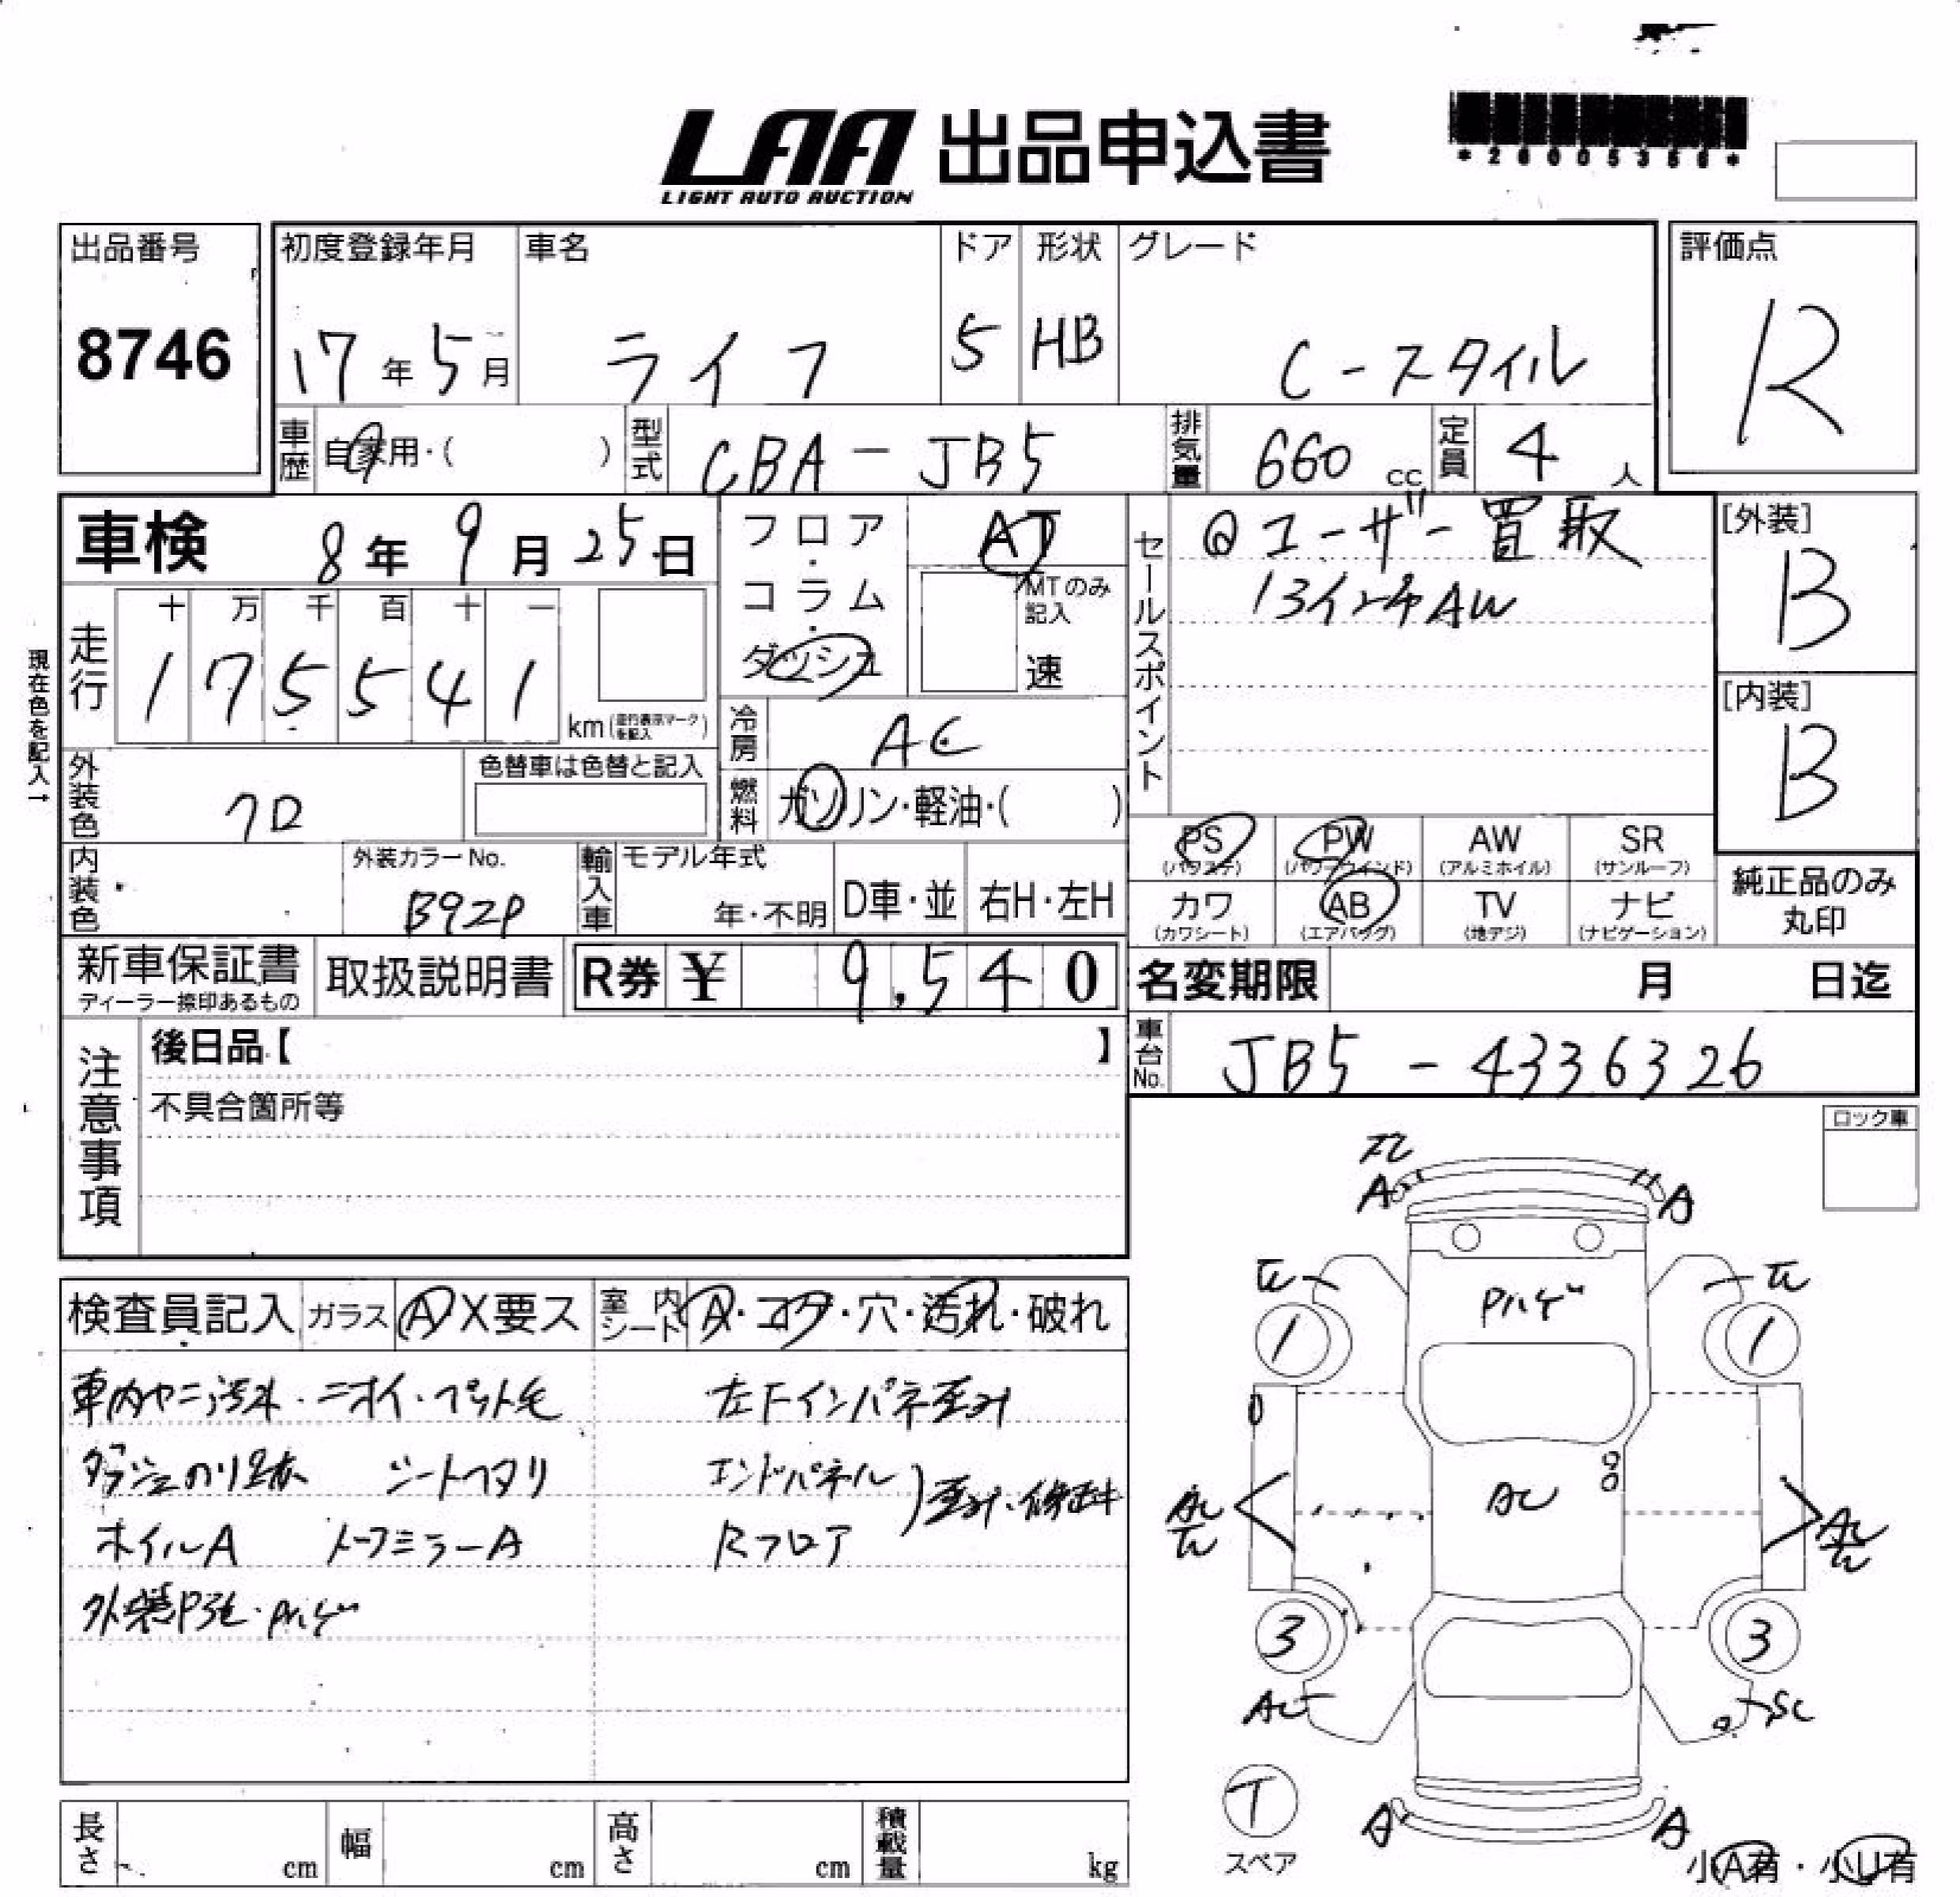 LAA 出品申込書
LIGHT AUTO AUCTION
出品番号
8746
初度登録年月
17年5月
車名
ライフ
ドア
5
形状
HB
グレード
C-スタイル
評価点
R
車歴 自家用・( )
型式 CBA-JB5
排気量 660 cc
定員 4 人
車検 8年9月25日
フロア・コラム・ダッシュ
AT
MTのみ記入
速
セールスポイント
ユーザー買取
13インチAW
[外装]
B
[内装]
B
現在色を記入→
走行
十 万 千 百 十 一
1 7 5 5 4 1
km
冷房 AC
外装色 クロ
色替車は色替と記入
燃料 ガソリン・軽油・( )
PS AW SR
(パワステ)
PW
(パワーウインド) (アルミホイル) (サンルーフ)
カワ AB TV ナビ
(カワシート) (エアバッグ) (地デジ) (ナビゲーション)
純正品のみ
丸印
内装色
外装カラーNo.
B92P
輸入車 モデル年式
年・不明
D車・並
右H・左H
新車保証書
ディーラー捺印あるもの
取扱説明書
R券 ¥ 9,540
名変期限 月 日迄
車台No. JB5-4336326
注意事項
後日品【 】
不具合箇所等
ロック車
検査員記入
ガラス A X要ス
室内シート A・コゲ・穴・汚れ・破れ
車内ヤニ汚れ・ニオイ・ペット毛
左Fインパネ歪み
シートヘタリ
エンドパネル
Rフロア
歪み・修正キ
ホイルA
ドアミラーA
Pハゲ
A
A
Pハゲ
1
1
AC
3
3
AC
SC
T
スペア
A
A
小A有・小U有
長さ cm
幅 cm
高さ cm
積載量 kg